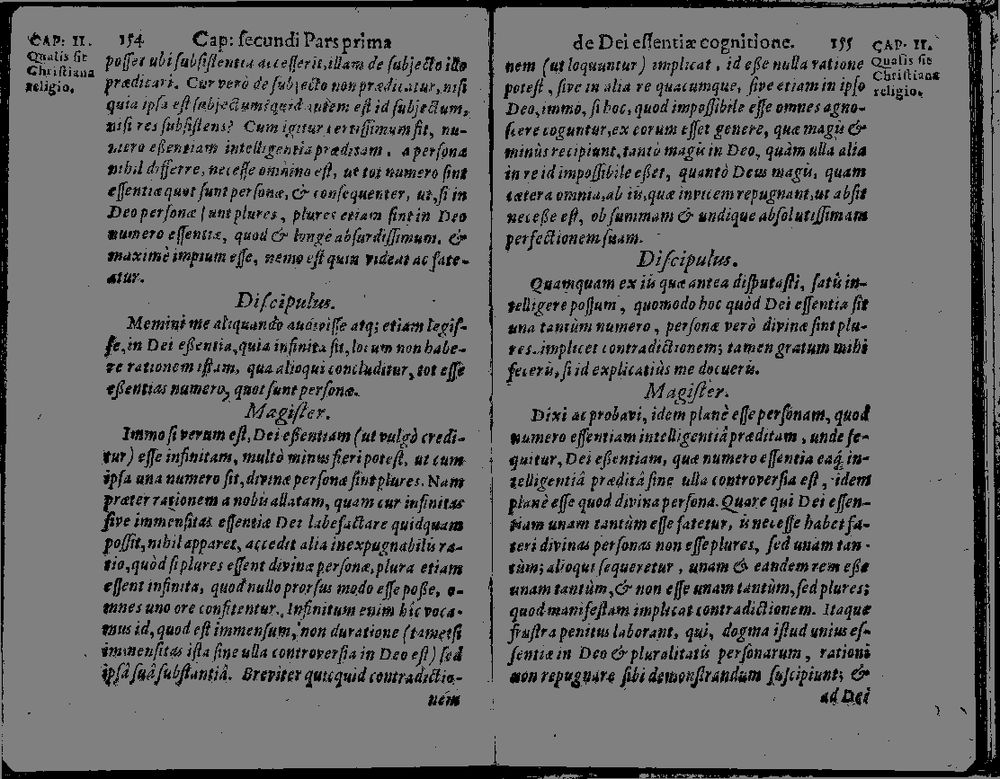 CAP: II.
Qualis sit
Christiana
religio.
154 Cap: secundi Pars prima
posset ubi subsistentia accesserit, illam de subjecto illo
prædicari. Cur verò de subjecto non prædicatur, nisi
quia ipsa est subjectum: quid autem est id subjectum,
nisi res subsistens? Cum igitur certissimum sit, nu-
mero eßentiam intelligentia præditam, a persona
nihil differre, necesse omnino est, ut tot numero sint
essentiæ quot sunt personæ, & consequenter, ut, si in
Deo personæ sunt plures, plures etiam sint in Deo
numero essentiæ, quod & longè absurdissimum, &
maximè impium esse, nemo est quin videat ac fate-
atur.
Discipulus.
Memini me aliquando audivisse atq; etiam legis-
se, in Dei eßentia, quia infinita sit, locum non habe-
re rationem istam, qua alioqui concluditur, tot esse
eßentias numero, quot sunt personæ.
Magister.
Immo si verum est, Dei eßentiam (ut vulgò credi-
tur) esse infinitam, multò minus fieri potest, ut cum
ipsa una numero sit, divinæ personæ sint plures. Nam
præter rationem a nobis allatam, quam cur infinitas
sive immensitas essentiæ Dei labefactare quidquam
possit, nihil apparet, accedit alia inexpugnabilis ra-
tio, quòd si plures essent divinæ personæ, plura etiam
essent infinita, quod nullo prorsus modo esse poße, o-
mnes uno ore confitentur. Infinitum enim hîc voca-
mus id, quod est immensum, non duratione (tametsi
immensitas ista sine ulla controversia in Deo est) sed
ipsâ suâ substantiâ. Breviter quicquid contradictio-
nem
de Dei essentiæ cognitione. 155
CAP. II.
Qualis sit
Christiana
religio.
nem (ut loquuntur) implicat, id eße nulla ratione
potest, sive in alia re quacumque, sive etiam in ipso
Deo, immò, si hoc, quod impossibile esse omnes agno-
scere coguntur, ex eorum esset genere, quæ magis &
minùs recipiunt, tantò magis in Deo, quàm ulla alia
in re id impossibile eßet, quantò Deus magis, quam
cætera omnia, ab iis, quæ invicem repugnant, ut absit
neceße est, ob summam & undique absolutissimam
perfectionem suam.
Discipulus.
Quamquam ex iis quæ antea disputasti, satis in-
telligere possum, quomodo hoc quòd Dei essentia sit
una tantùm numero, personæ verò divinæ sint plu-
res, implicet contradictionem; tamen gratum mihi
feceris, si id explicatiùs me docueris.
Magister.
Dixi ac probavi, idem planè esse personam, quod
numero essentiam intelligentiâ præditam, unde se-
quitur, Dei eßentiam, quæ numero essentia eaq́; in-
telligentiâ præditâ sine ulla controversia est, idem
planè esse quod divina persona. Quare qui Dei essen-
tiam unam tantùm esse fatetur, is necesse habet fa-
teri divinas personas non esse plures, sed unam tan-
tùm; alioqui sequeretur, unam & eandem rem eße
unam tantùm, & non esse unam tantùm, sed plures;
quod manifestam implicat contradictionem. Itaque
frustra penitus laborant, qui, dogma istud unius es-
sentiæ in Deo & pluralitatis personarum, rationi
non repugnare sibi demonstrandum suscipiunt; &
ad Dei